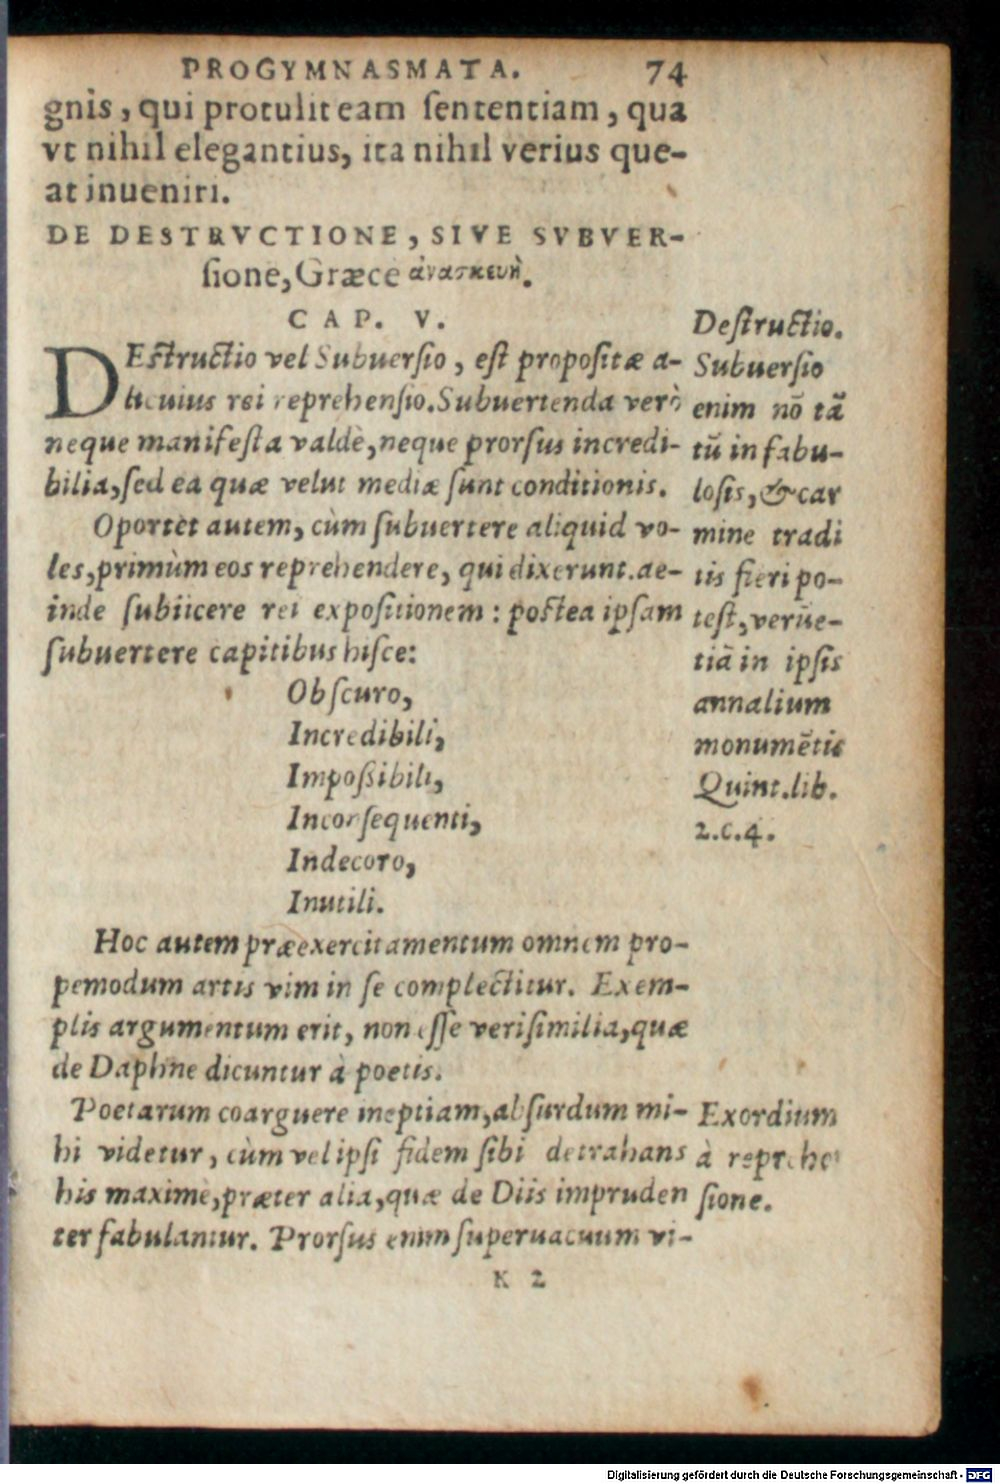 PROGYMNASMATA. 74
gnis, qui protulit eam sententiam, qua
vt nihil elegantius, ita nihil verius que-
at inueniri.
DE DESTRVCTIONE, SIVE SVBVER-
sione, Græce ἀνασκευὴ.
CAP. V.
DEstructio vel Subuersio, est propositæ a-
licuius rei reprehensio. Subuertenda verò
neque manifesta valdè, neque prorsus incredi-
bilia, sed ea quæ velut mediæ sunt conditionis.
Oportet autem, cùm subuertere aliquid vo-
les, primùm eos reprehendere, qui dixerunt. de-
inde subiicere rei expositionem: postea ipsam
subuertere capitibus hisce:
Obscuro,
Incredibili,
Impoßibili,
Inconsequenti,
Indecoro,
Inutili.
Hoc autem præexercitamentum omnem pro-
pemodum artis vim in se complectitur. Exem-
plis argumentum erit, non esse verisimilia, quæ
de Daphne dicuntur à poetis.
Poetarum coarguere ineptiam, absurdum mi-
hi videtur, cùm vel ipsi fidem sibi detrahans
his maximè, præter alia, quæ de Diis impruden
ter fabulantur. Prorsus enim superuacuum vi-
K 2
Destructio.
Subuersio
enim nō tā
tū in fabu-
losis, & car
mine tradi
tis fieri po-
test, verūe-
tiā in ipsis
annalium
monumētis
Quint. lib.
2. c. 4.
Exordium
à reprehē
sione.
Digitalisierung gefördert durch die Deutsche Forschungsgemeinschaft - DFG